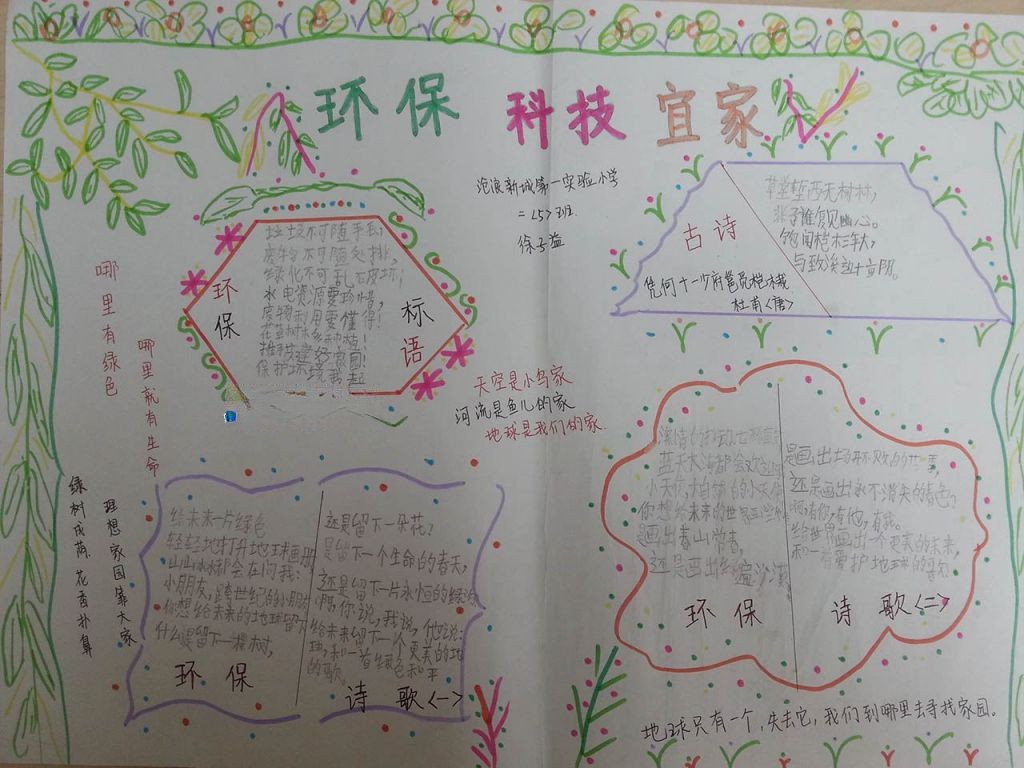 环保 科技 宜家
沧浪新城第一实验小学
二<5>班
徐子益
环保
标语
垃圾不可随手丢,
废物不可随处排,
绿化不可乱
水电资源要珍惜,
废物利用要懂得!
保护环境
古诗
凭何十一少府邕觅桤木栽
杜甫<唐>
草堂堑西无树林,
非子谁复见幽心。
饱闻桤木三年大,
与致溪边十亩阴。
哪里有绿色
哪里就有生命
天空是小鸟家
河流是鱼儿的家
地球是我们的家
绿树成荫 花香扑鼻
理想家园靠大家
给未来一片绿色
轻轻地打开地球画册
山山水水都会在问我:
小朋友,跨世纪的小朋友
你想给未来的地球留下
什么是留下一棵树,
还是留下一朵花?
是留下一个生命的春天,
还是留下一片永恒的绿
啊,你说,我说,他说:
给未来留下一个更美的地
的歌。
环保
诗歌<一>
蓝天大海都会
小天使,
你想给未来的世界画些
是画出青山常春,
还是画出绿遍沙漠
是画出场不败的世界,
还是画出永不消失的春色?
啊,有你,有他,有我。
给世界画出一个更美的未来,
和一首爱护地球的
环保
诗歌<二>
地球只有一个,失去它,我们到哪里去寻找家园。